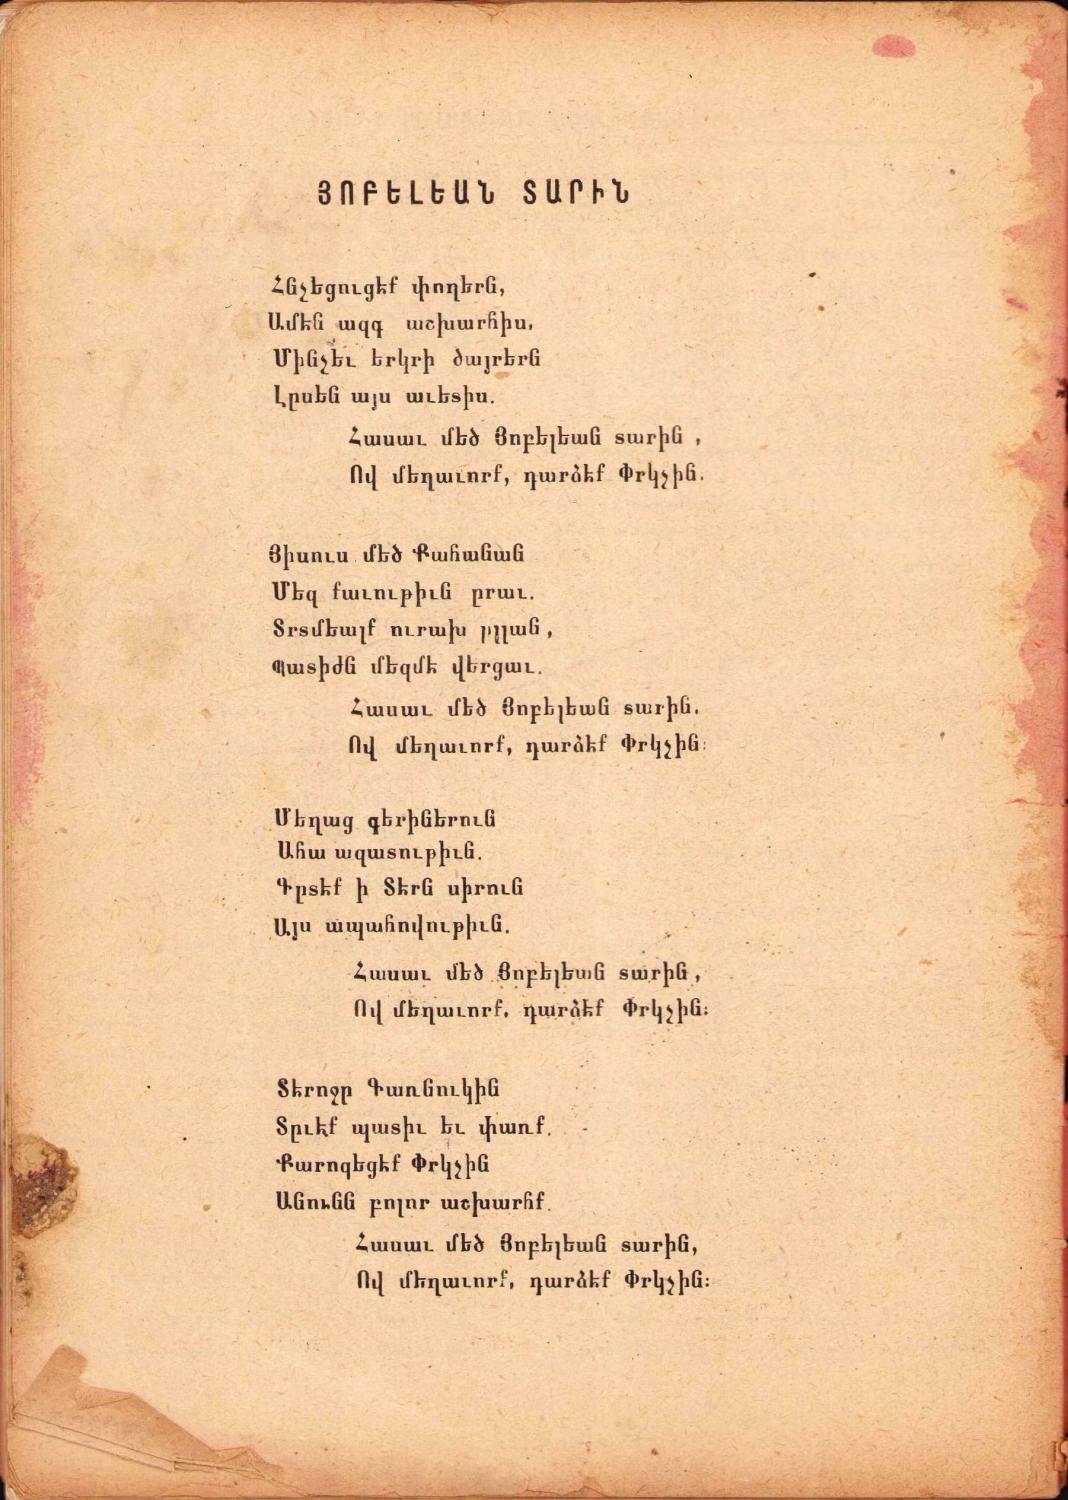 ՅՈԲԵԼԵԱՆ ՏԱՐԻՆ
Հնչեցուցէք փողերն,
Ամէն ազգ աշխարհիս,
Մինչեւ երկրի ծայրերն
Լըսեն այս աւետիս.
Հասաւ մեծ Յոբելեան տարին ,
Ով մեղաւորք, դարձէք Փրկչին.
Յիսուս մեծ Քահանան
Մեզ քաւութիւն ըրաւ.
Տրտմեալք ուրախ ըլլան ,
Պատիժն մեզմէ վերցաւ.
Հասաւ մեծ Յոբելեան տարին.
Ով մեղաւորք, դարձէք Փրկչին։
Մեղաց գերիներուն
Ահա ազատութիւն.
Գըտէք ի Տէրն սիրուն
Այս ապահովութիւն.
Հասաւ մեծ Յոբելեան տարին ,
Ով մեղաւորք, դարձէք Փրկչին։
Տէրոջը Գառնուկին
Տըւէք պատիւ եւ փառք.
Քարոզեցէք Փրկչին
Անունն բոլոր աշխարհք.
Հասաւ մեծ Յոբելեան տարին,
Ով մեղաւորք, դարձէք Փրկչին։